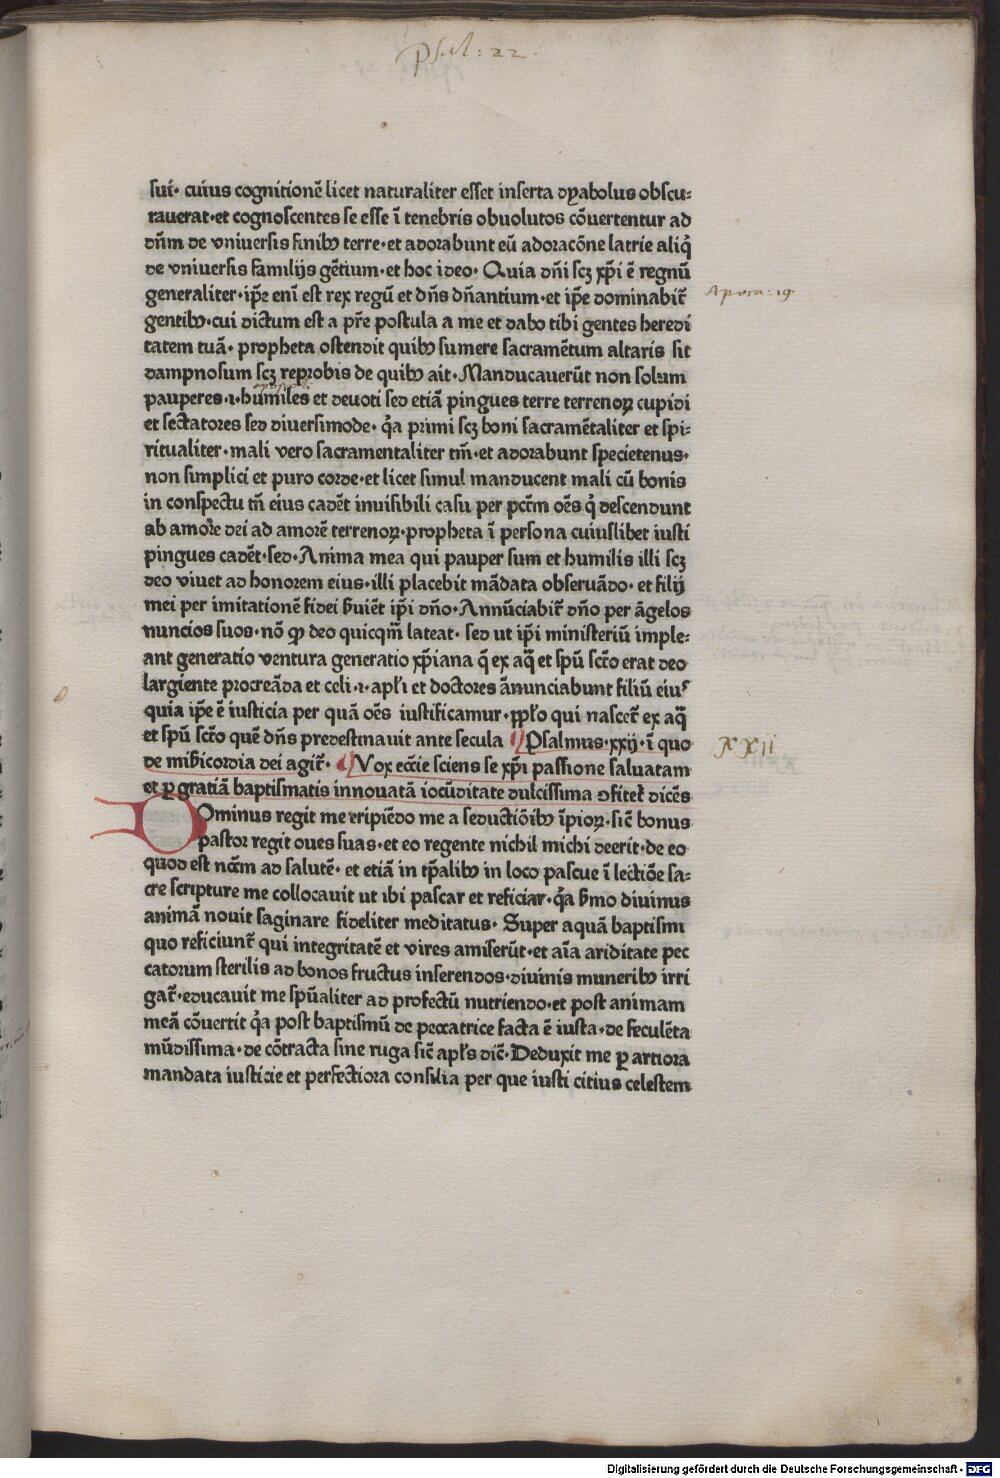 Psal: 22.
sui· cuius cognitionē licet naturaliter esset inserta dyabolus obscu⸗
rauerat·et cognoscentes se esse ī tenebris obuolutos cōuertentur ad
dn̄m de vniuersis finibꝰ terre·et adorabunt eū adoracōne latrie aliq̄
de vniuersis familijs gētium·et hoc ideo· Quia dn̄i scꝫ xp̄i ē regnū
generaliter·ip̄e eni est rex regū et dn̄s dn̄antium·et ip̄e dominabit᷑
Apoca: 19.
gentibꝰ·cui dictum est a pr̄e postula a me et dabo tibi gentes heredi
tatem tuā· propheta ostendit quibꝰ sumere sacramētum altaris sit
dampnosum scꝫ reprobis de quibꝰ ait·Manducauerūt non solum
pauperes·i·humiles et deuoti sed etiā pingues terre terrenoꝝ cupidi
et sectatores sed diuersimode· q̄a primi scꝫ boni sacramētaliter et spi⸗
ritualiter·mali vero sacramentaliter tm̄·et adorabunt specietenus·
non simplici et puro corde·et licet simul manducent mali cū bonis
in conspectu tn̄ eius cadēt inuisibili casu per pctm̄ oēs q̇ descendunt
ab amore dei ad amorē terrenoꝝ·propheta ī persona cuiuslibet iusti
pingues cadēt·sed·Anima mea qui pauper sum et humilis illi scꝫ
deo viuet ad honorem eius·illi placebit mādata obseruādo·et filij
mei per imitationē fidei ẜuiēt ip̄i dn̄o·Annūciabit᷑ dn̄o per āgelos
nuncios suos·nō ꝙ deo quicqm̄ lateat· sed ut ip̄i ministeriū imple⸗
ant generatio ventura generatio xp̄iana q̄ ex aq̄ et spū scto erat deo
largiente procreāda et celi·i·apl̄i et doctores ānunciabunt filiū eiuˢ
quia ip̄e ē iusticia per quā oēs iustificamur·ppl̄o qui nascet᷑ ex aq̄
et spū scto quē dn̄s predestinauit ante secula ¶Psalmus·xxij·ī quo
XXII
de mĩẜicordia dei agit᷑· ¶Vox eccīe sciens se xp̄i passione saluatam
et ꝑ gratiā baptismatis innouatā iocūditate dulcissima ꝯfitet᷑ dicēs
Dominus regit me eripiēdo me a seductiōibꝰ īpioꝝ·sic̄ bonus
pastor regit oues suas·et eo regente nichil michi deerit·de eo
quod est nc̄cm ad salutē· et etiā in tp̄alibꝰ in loco pascue ī lectiōe sa⸗
cre scripture me collocauit ut ibi pascar et reficiar·q̄a ẜmo diuinus
animā nouit saginare fideliter meditatus· Super aquā baptismi
quo reficiunt᷑ qui integritatē et vires amiserūt·et aīa ariditate pec
catorum sterilis ad bonos fructus inserendos·diuinis muneribꝰ irri
gat᷑·educauit me spūaliter ad profectū nutriendo·et post animam
meā cōuertit q̄a post baptismū de peccatrice facta ē iusta·de feculēta
mūdissima·de cōtracta sine ruga sic̄ apl̄s dic̄·Deduxit me ꝑ artiora
mandata iusticie et perfectiora consilia per que iusti citius celestem
Digitalisierung gefördert durch die Deutsche Forschungsgemeinschaft - DFG